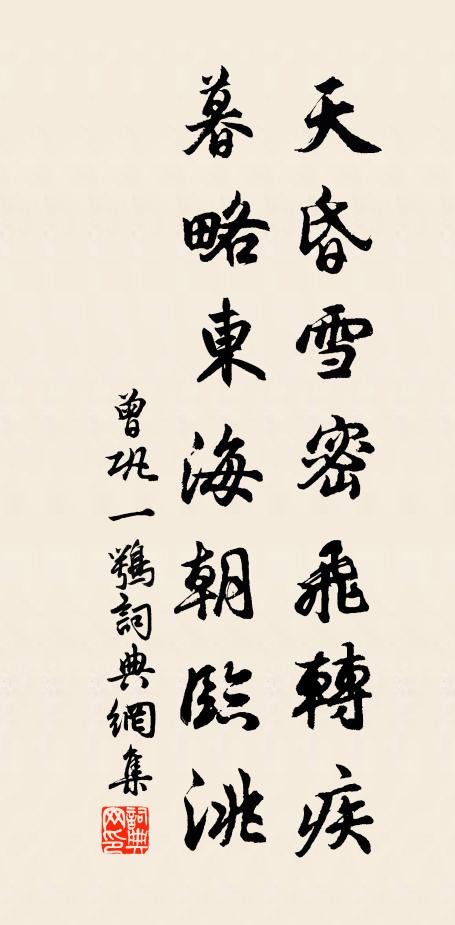 天昏雪密飛轉疾
暮略東海朝臨洮
曾巩一鶚詞典網集
詞典網印